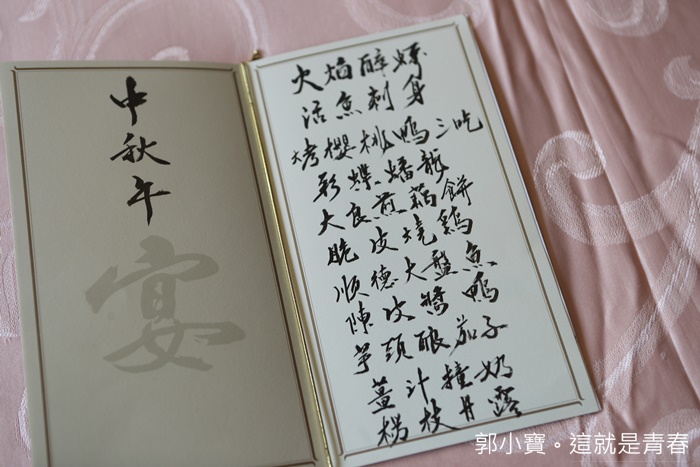 中秋午
宴
火焰醉蝦
活魚刺身
烤櫻桃鴨三吃
彩蝶蟠龍
大良煎藕餅
脆皮燒鷄
順德大盤魚
陳皮鴨
芋頭釀茄子
薑汁撞奶
楊枝甘露
郭小寶。這就是青春